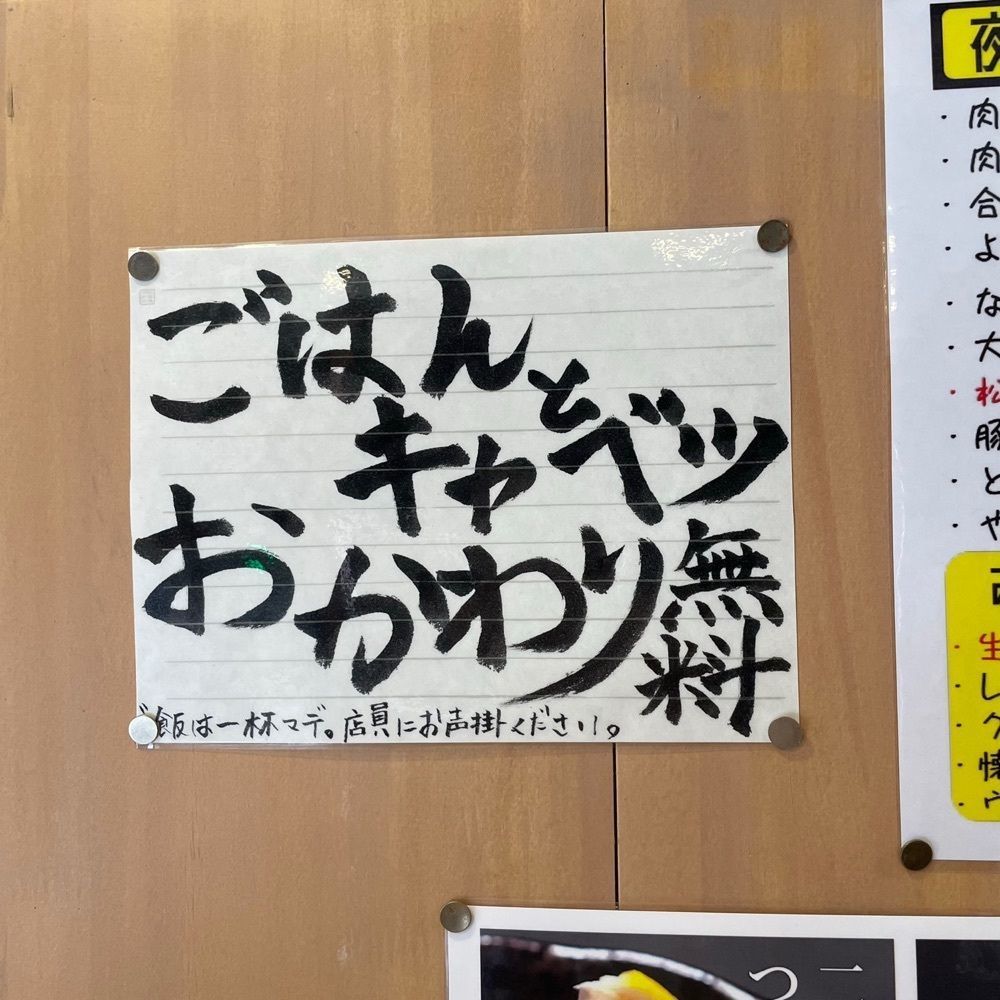 ごはんと
キャベツ
おかわり無料
ご飯は一杯マデ。店員にお声掛ください。
夜
・肉
・肉
・合
・よ
・な
・大
・松
・豚
・と
・や
・生
・レ
・ク
・懐
・ウ
一
つ